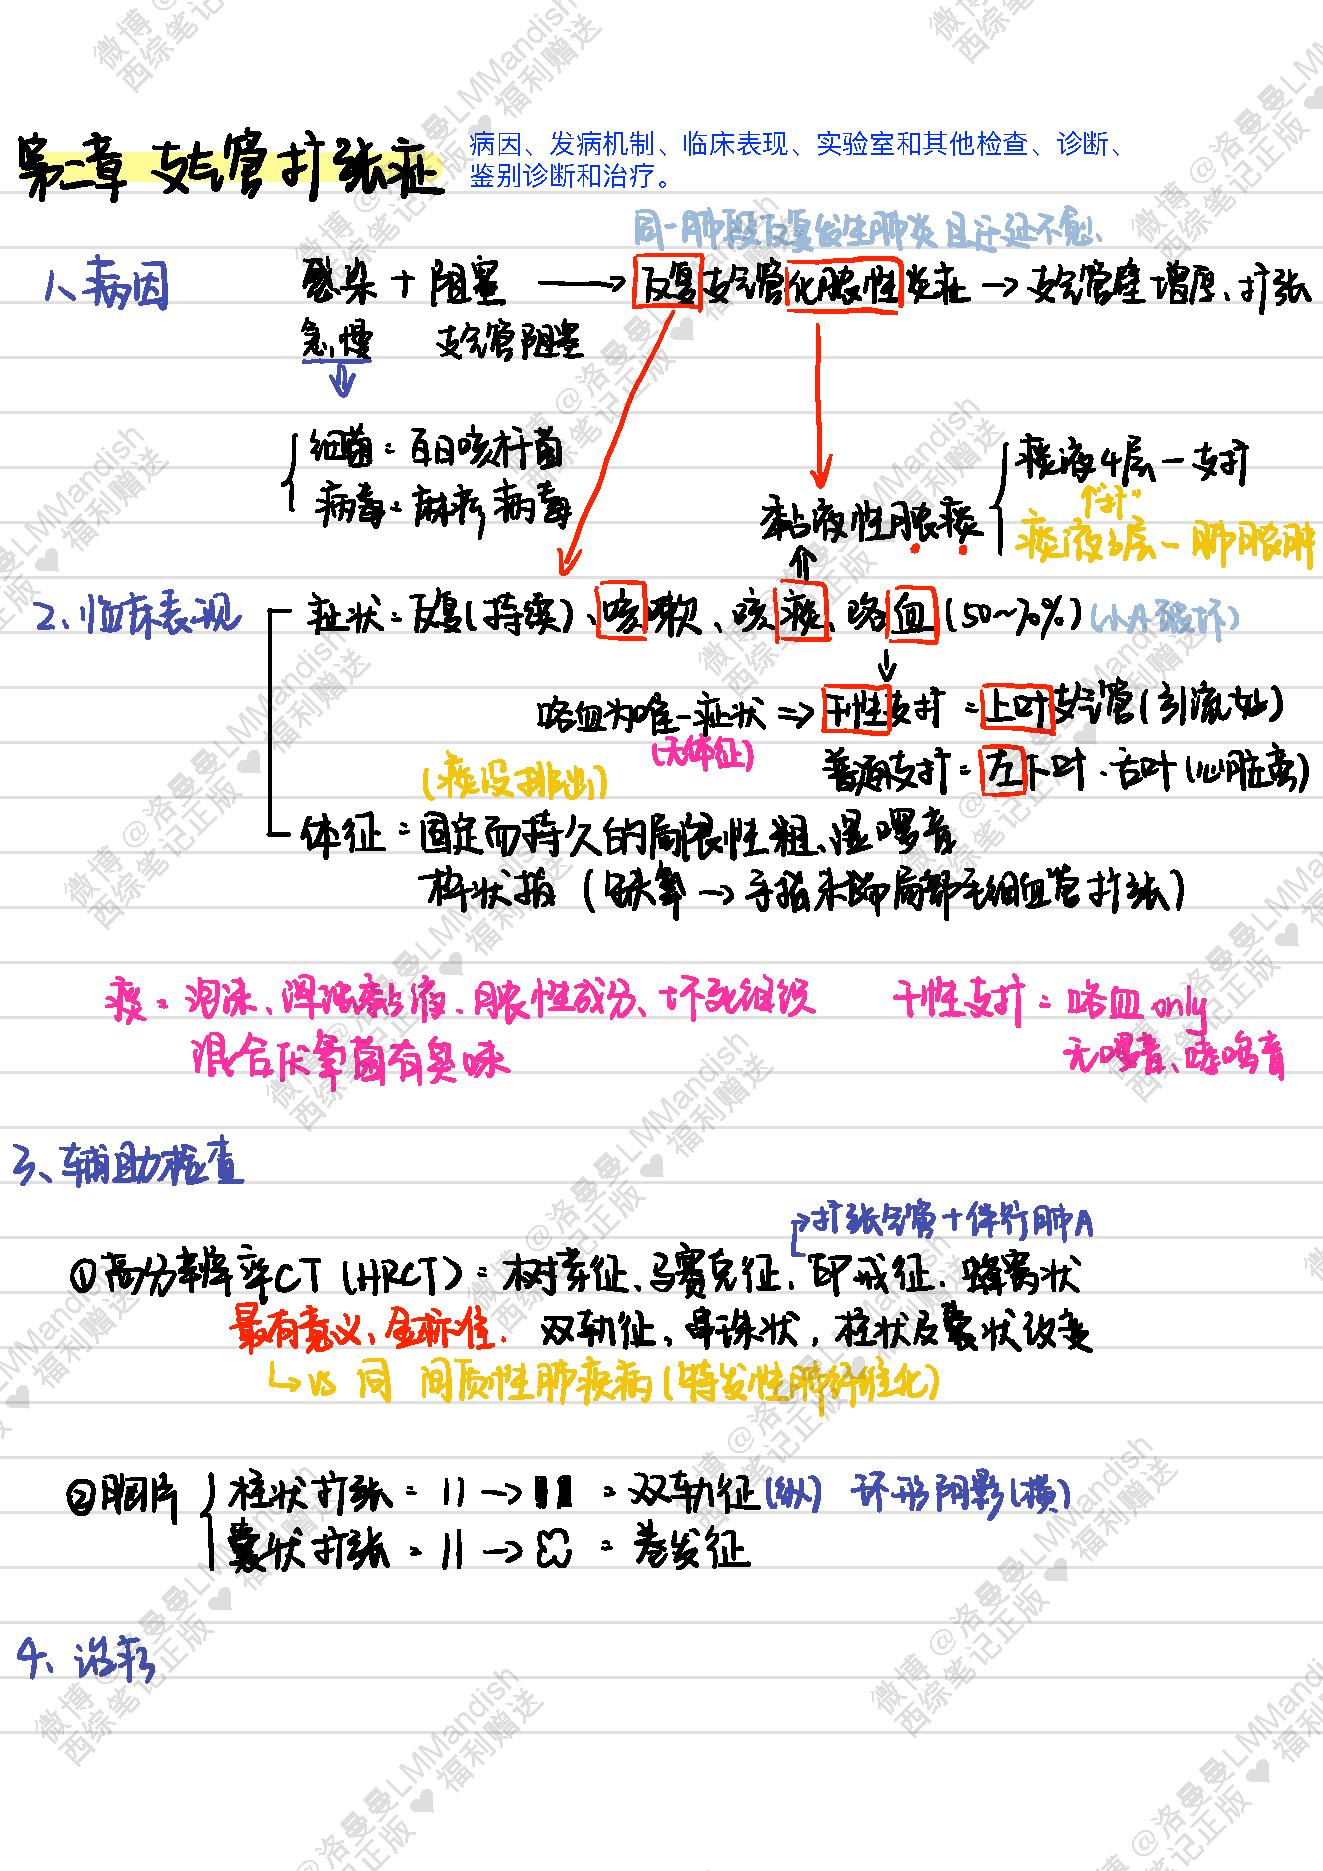 第二章 支气管扩张症
病因、发病机制、临床表现、实验室和其他检查、诊断、
鉴别诊断和治疗。
同一肺段反复发生肺炎且迁延不愈、
1、病因 感染 + 阻塞 → 反复支气管化脓性炎症 → 支气管壁增厚、扩张
急、慢 支气管阻塞
细菌：百日咳杆菌
病毒：麻疹病毒
痰液4层—支扩
黏液性脓痰
痰液3层—肺脓肿
2、临床表现 症状：反复(持续)、咳嗽、咳痰、咯血(50~70%)(小A破坏)
咯血为唯一症状 ⇒ 干性支扩 = 上叶支气管(引流好)
(无体征)
普通支扩 = 左下叶、舌叶(心脏旁)
(痰没排出)
体征：固定而持久的局限性粗、湿啰音
杵状指 (缺氧 → 手指末端局部毛细血管扩张)
痰：泡沫、浑浊黏液、脓性成分、坏死组织 干性支扩：咯血 only
混合厌氧菌有臭味 无啰音、哮鸣音
3、辅助检查
扩张气管+伴行肺A
①高分辨率CT (HRCT)：树芽征、马赛克征、印戒征、蜂窝状
最有意义、金标准. 双轨征，串珠状，柱状及囊状改变
vs 同 间质性肺疾病(特发性肺纤维化)
②胸片 柱状扩张：|| → = 双轨征(纵) 环形阴影(横)
囊状扩张：|| → = 卷发征
4、治疗
微博 @洛曼曼LMMandish
西综笔记正版 ♥ 福利赠送